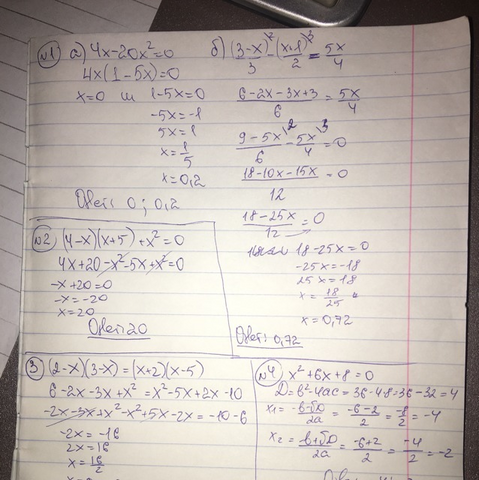 №1 а) 4x-20x²=0
4x(1-5x)=0
x=0 или 1-5x=0
-5x=-1
5x=1
x=1/5
x=0,2
Ответ: 0; 0,2
б) (3-x)\²/3 - (x-1)\³/2 = 5x/4
(6-2x-3x+3)/6 = 5x/4
(9-5x)\²/6 - 5x\³/4 = 0
(18-10x-15x)/12 = 0
(18-25x)/12 = 0
18-25x=0
-25x=-18
25x=18
x=18/25
x=0,72
Ответ: 0,72
№2 (4-x)(x+5)+x²=0
4x+20-x²-5x+x²=0
-x+20=0
-x=-20
x=20
Ответ: 20
3 (2-x)(3-x)=(x+2)(x-5)
6-2x-3x+x²=x²-5x+2x-10
-2x-3x+x²-x²+5x-2x=-10-6
-2x=-16
2x=16
x=16/2
№4 x²+6x+8=0
D=b²-4ac=36-4·8=36-32=4
x₁=(-b-√D)/2a=(-6-2)/2=-8/2=-4
x₂=(-b+√D)/2a=(-6+2)/2=-4/2=-2